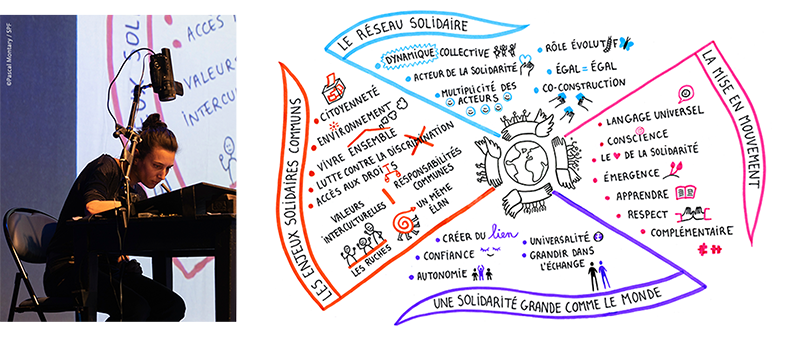 ©Pascal Montary / SPF
ACCÈS
VALEURS
INTERCU
LE RÉSEAU SOLIDAIRE
DYNAMIQUE COLLECTIVE
ACTEUR DE LA SOLIDARITÉ
MULTIPLICITÉ DES
ACTEURS
RÔLE ÉVOLUTIF
ÉGAL = ÉGAL
CO-CONSTRUCTION
LES ENJEUX SOLIDAIRES COMMUNS
CITOYENNETÉ
ENVIRONNEMENT
VIVRE ENSEMBLE
LUTTE CONTRE LA DISCRIMINATION
ACCÈS AUX DROITS
RESPONSABILITÉS
COMMUNES
VALEURS
INTERCULTURELLES
UN MÊME
ÉLAN
LES RUCHES
LA MISE EN MOUVEMENT
LANGAGE UNIVERSEL
CONSCIENCE
LE ♥ DE LA SOLIDARITÉ
ÉMERGENCE
APPRENDRE
RESPECT
COMPLÉMENTAIRE
CRÉER DU lien
CONFIANCE
AUTONOMIE
UNIVERSALITÉ
GRANDIR DANS
L'ÉCHANGE
UNE SOLIDARITÉ GRANDE COMME LE MONDE